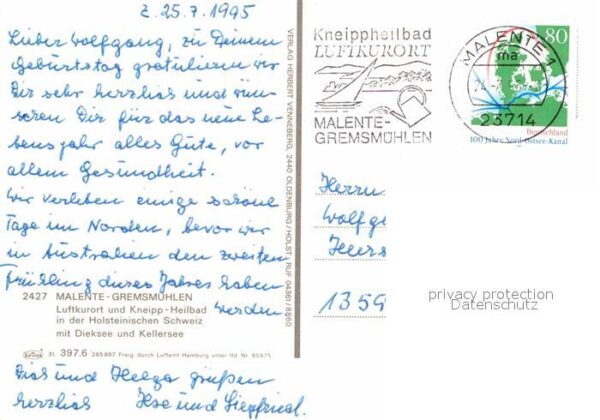 z. 25.7.1995
Lieber Wolfgang, zu Deinem
Geburtstag gratulieren wir
Dir sehr herzlich und wün-
schen Dir für das neue Le-
bensjahr alles Gute, vor
allem Gesundheit.
Wir verleben einige schöne
Tage im Norden, bevor wir
in Australien den zweiten
Frühling dieses Jahres haben
werden
2427 MALENTE-GREMSMÜHLEN
Luftkurort und Kneipp-Heilbad
in der Holsteinischen Schweiz
mit Dieksee und Kellersee
31. 397.6 265897 Freig. durch Luftamt Hamburg unter Nr. 85975
und Helga grüßen
herzlich Ilse und Siegfried.
VERLAG HERBERT VENNEBERG, 2440 OLDENBURG/HOLST., RUF 04361/8860
Kneippheilbad
LUFTKURORT
MALENTE-
GREMSMÜHLEN
MALENTE 1
ma
23714
80
Deutschland
100 Jahre Nord-Ostsee-Kanal
Herrn
Wolfg
1359
privacy protection
Datenschutz